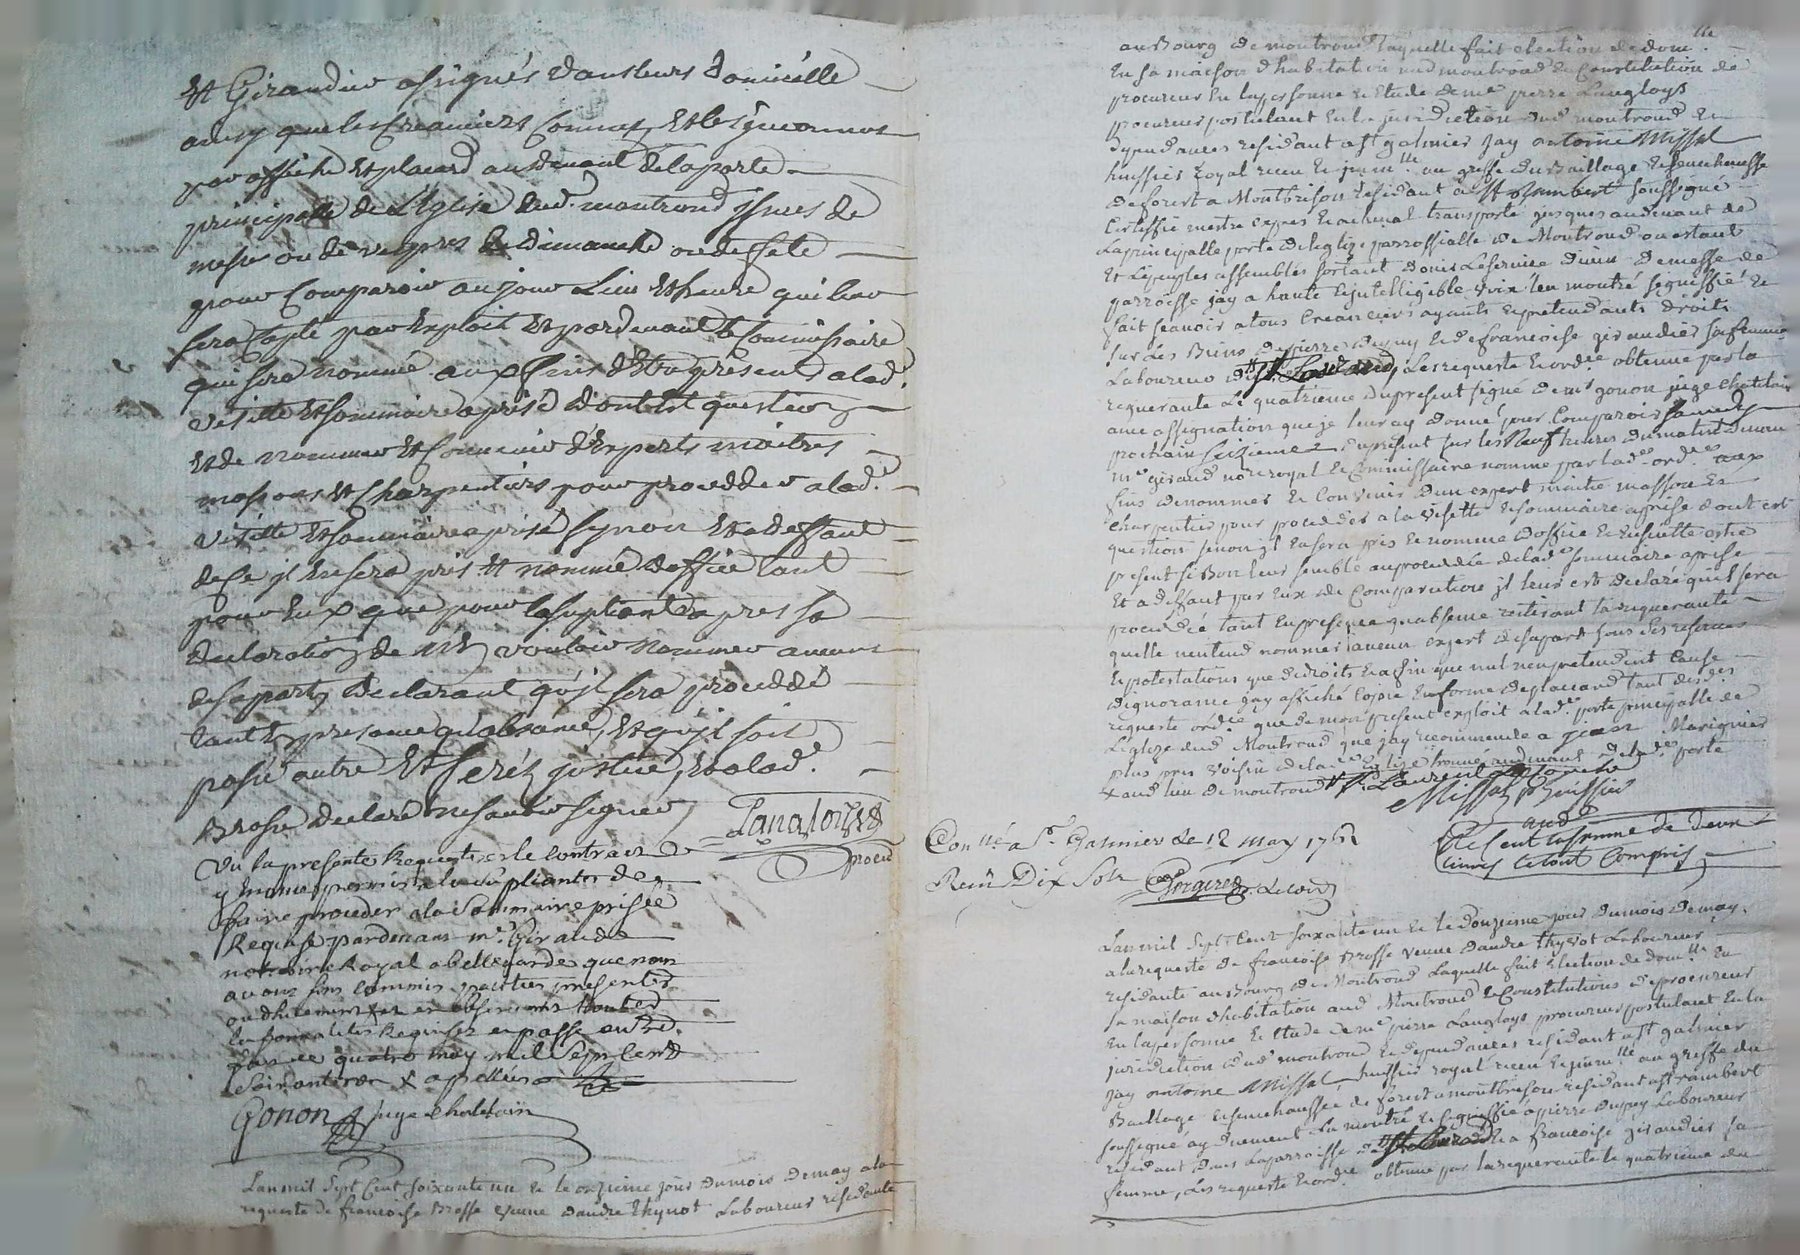 Et Girandier assignés dans leurs domicille
ainsy que les Creanciers Connus, Et les inconnus
par affiche Et placard au devant de la porte
principalle de L'Eglise dud. montrond issues de
messe ou de vespres le dimanche ou de feste
pour Comparoir au jour Lieu Et heure qui leur
sera Cotté par Exploit Et pardevant le Commissaire
qui sera nommé aux fins d'Etre présents a lad.
visitte Et sommaire aprisé dont Est question
Et de nommer Et Convenir d'Experts maitres
massons Et Charpentiers pour procedder a lad.
visitte Et sommaire aprisé synon Et a deffaut
de Ce jl En sera pris Et nommé d'office tant
pour Eux que pour la supliante apres sa
declaration de vouloir nommer aucuns
de sa part, declarant qu'jl sera proceddé
tant En presance qu'absance, Et qu'jl soit
passé outre Et ferés justice, Et a lad.
Brosse declaré ne savoir signer
Langloys
procu
Vu la presente Requeste le contenu
y permis a la supliante de
faire proceder a la Sommaire prisée
Requise pardevant me. Giraud
notaire Royal a bellegarde que nous
avons commis parties presentes
ou dhuement
les formalites Requises en passé outre.
ce quatre may mil Sept Cent
Soixante un appellées
Gonon juge chatelain
Lan mil Sept Cent soixante un Et le onzieme jour du mois de may a la
requeste de francoise Brosse veuve dandre thynot Laboureur residante
au Bourg de montrond laquelle fait election de dom.lle
En sa maison d'habitation aud montrond Et Constitution de
procureur En la personne Et Etude de me pierre Langloys
procureur postulant En la jurisdiction dud montrond Et
dependances residant a st galmier jay antoine Missal
huissier royal receu Et jmm.lle au greffe du Baillage Et senechaussée
de forest a Montbrison residant a St Rambert soussigné
Certiffie mestre expres Et a cheval transporté jusques au devant de
La principalle porte de leglize parroissialle de Montrond ou estant
Et Le peuples assemblés sortant d'ouir Le service divin de messe de
parroisse jay a haute Et jntelligible voix leu montré signiffié Et
fait scavoir a tous Creanciers ayants Et pretendants droits
sur Les Biens de pierre dupuy Et de francoise girandier sa femme
Laboureur d St Laurend, Les requeste Et ord.ce obtenue par la
requerante Le quatrieme du present signé de mr gonon juge chatelain
avec assignation que je leur ay donné pour Comparoir samedy
prochain seizieme du present sur les Neuf heures du matin devant
me giraud no.re royal Et Commissaire nommé par lad. ord.ce aux
fins de nommer Et Convenir d'un expert maitre masson Et
charpentier pour proceder a la visitte Et sommaire aprise dont est
question sinon jl En sera pris Et nommé d'office Et Ensuitte estre
present si Bon leur semble au proceddé de lad. sommaire aprise
Et a deffaut par Eux de Comparution jl leur est declaré qu'il sera
proceddé tant En presence qu'absence la requerante
quelle n'entend nommer aucun expert de sa part sous Les reserves
Et protestations que de droits Et afin que nul n'en pretendent Cause
d'ignorance jay affiché Copie En forme de placard tant desd.
requeste ord.ce que de mon present exploit a lad. porte principalle de
L'eglize dud Montrond que jay recommandé a jean Marignier
plus pres voisin de lad. eglise trouvé au devant de lad. porte
aud lieu de montrond St Laurend approuvé
Missal huissier
Con.lé a St. Galmier le 12 may 1761
Recu Dix Sols
aud
Et Sont la somme de deux
livres le tout compris
Lan mil Sept Cent soixante un Et le douzieme jour du mois de may.
a la requeste de francoise Brosse veuve dandre thynot Laboureur
residante au Bourg de Montrond Laquelle fait election de dom.lle En
sa maison d'habitation aud Montrond Et Constitution de procureur
En la personne Et Etude de me pierre Langloys procureur postulant En la
jurisdiction dud montrond Et dependances residant a st galmier
jay antoine Missal, huissier royal receu Et jmm.lle au greffe du
Baillage Et senechaussée de forest a montbrison residant a st rambert
soussigné ay duement Lu montré Et signiffié a pierre dupuy Laboureur
residant dans La parroisse d St Laurend Et a francoise girandier sa
femme, Les requeste Et ord.ce obtenue par la requerante le quatrieme du